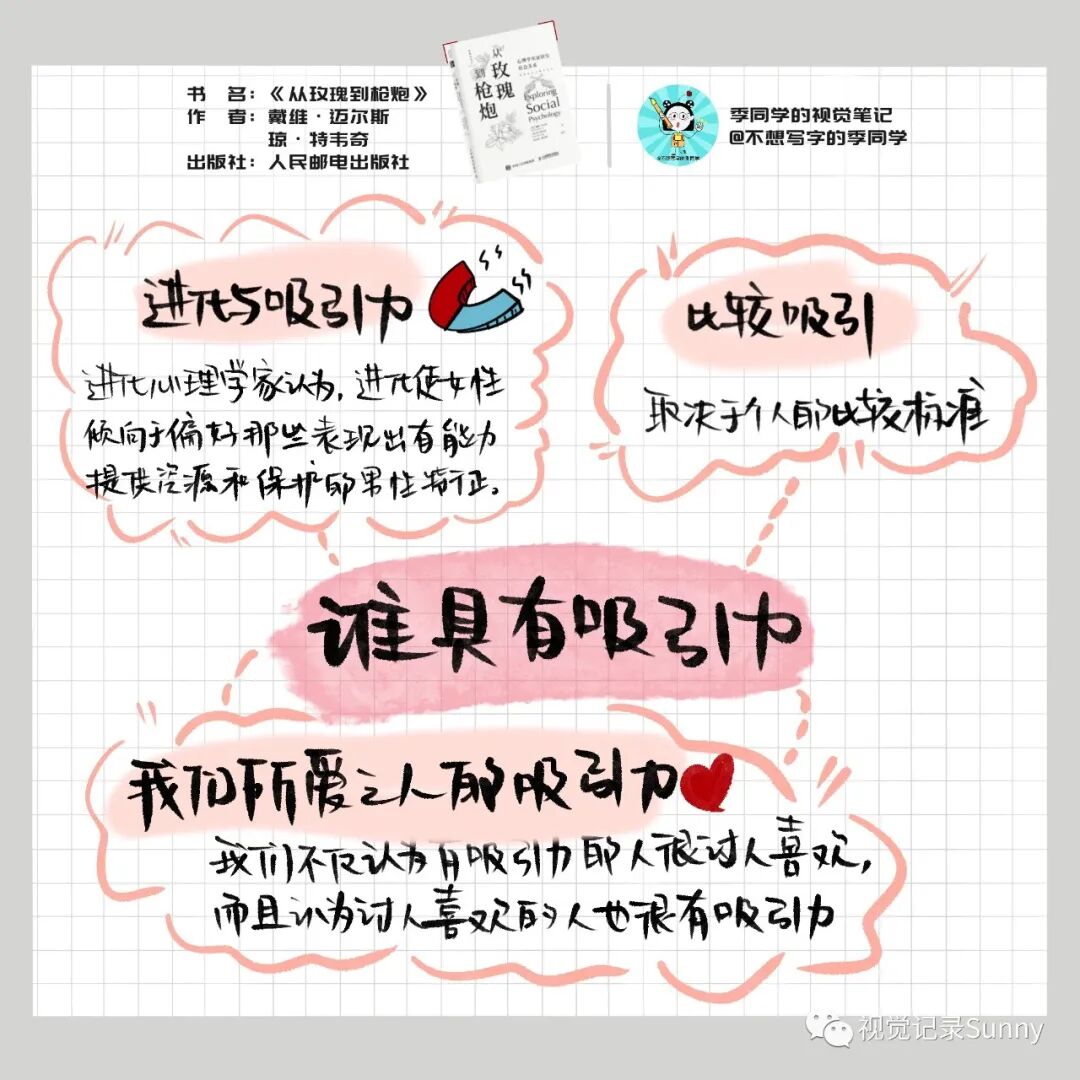 书 名：《从玫瑰到枪炮》
作 者：戴维·迈尔斯
琼·特韦奇
出版社：人民邮电出版社
从玫瑰到枪炮
Exploring
Social
Psychology
季同学的视觉笔记
@不想写字的季同学
进化与吸引力
进化心理学家认为，进化使女性
倾向于偏好那些表现出有能力
提供资源和保护的男性特征。
比较吸引
取决于个人的比较标准
谁具有吸引力
我们所爱之人的吸引力
我们不仅认为有吸引力的人很讨人喜欢，
而且认为讨人喜欢的人也很有吸引力
视觉记录Sunny